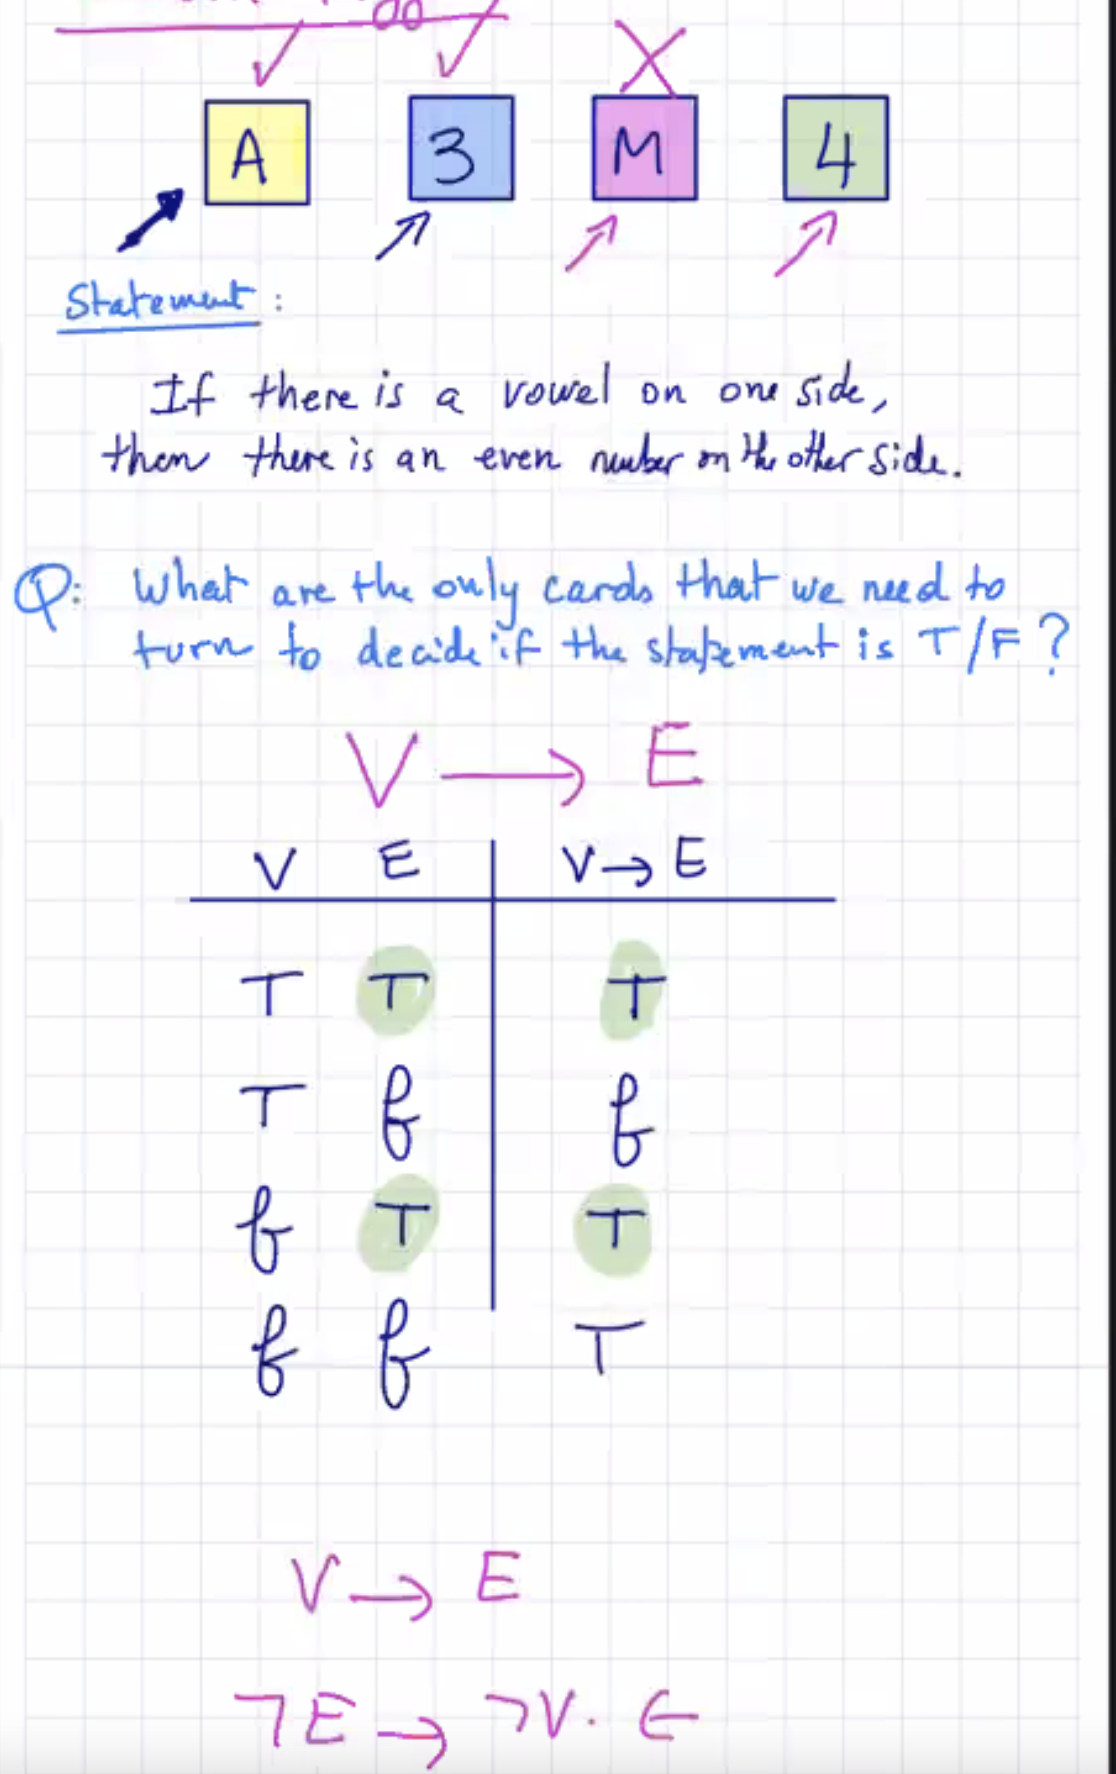 A 3 M 4
Statement:
If there is a vowel on one side,
then there is an even number on the other side.
Q: What are the only cards that we need to
turn to decide if the statement is T/F?
V → E
V E V → E
T T T
T f f
f T T
f f T
V → E
¬E → ¬V. ←